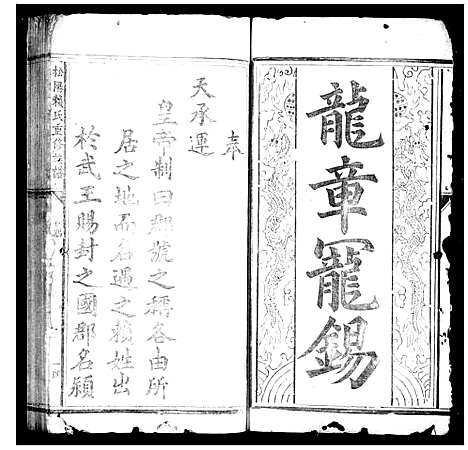 龍章寵錫
奉
天承運
皇帝制曰郡號之稱各由所
居之地而名過之賴姓出
於武王賜封之國郡名潁
松陽賴氏重修族譜